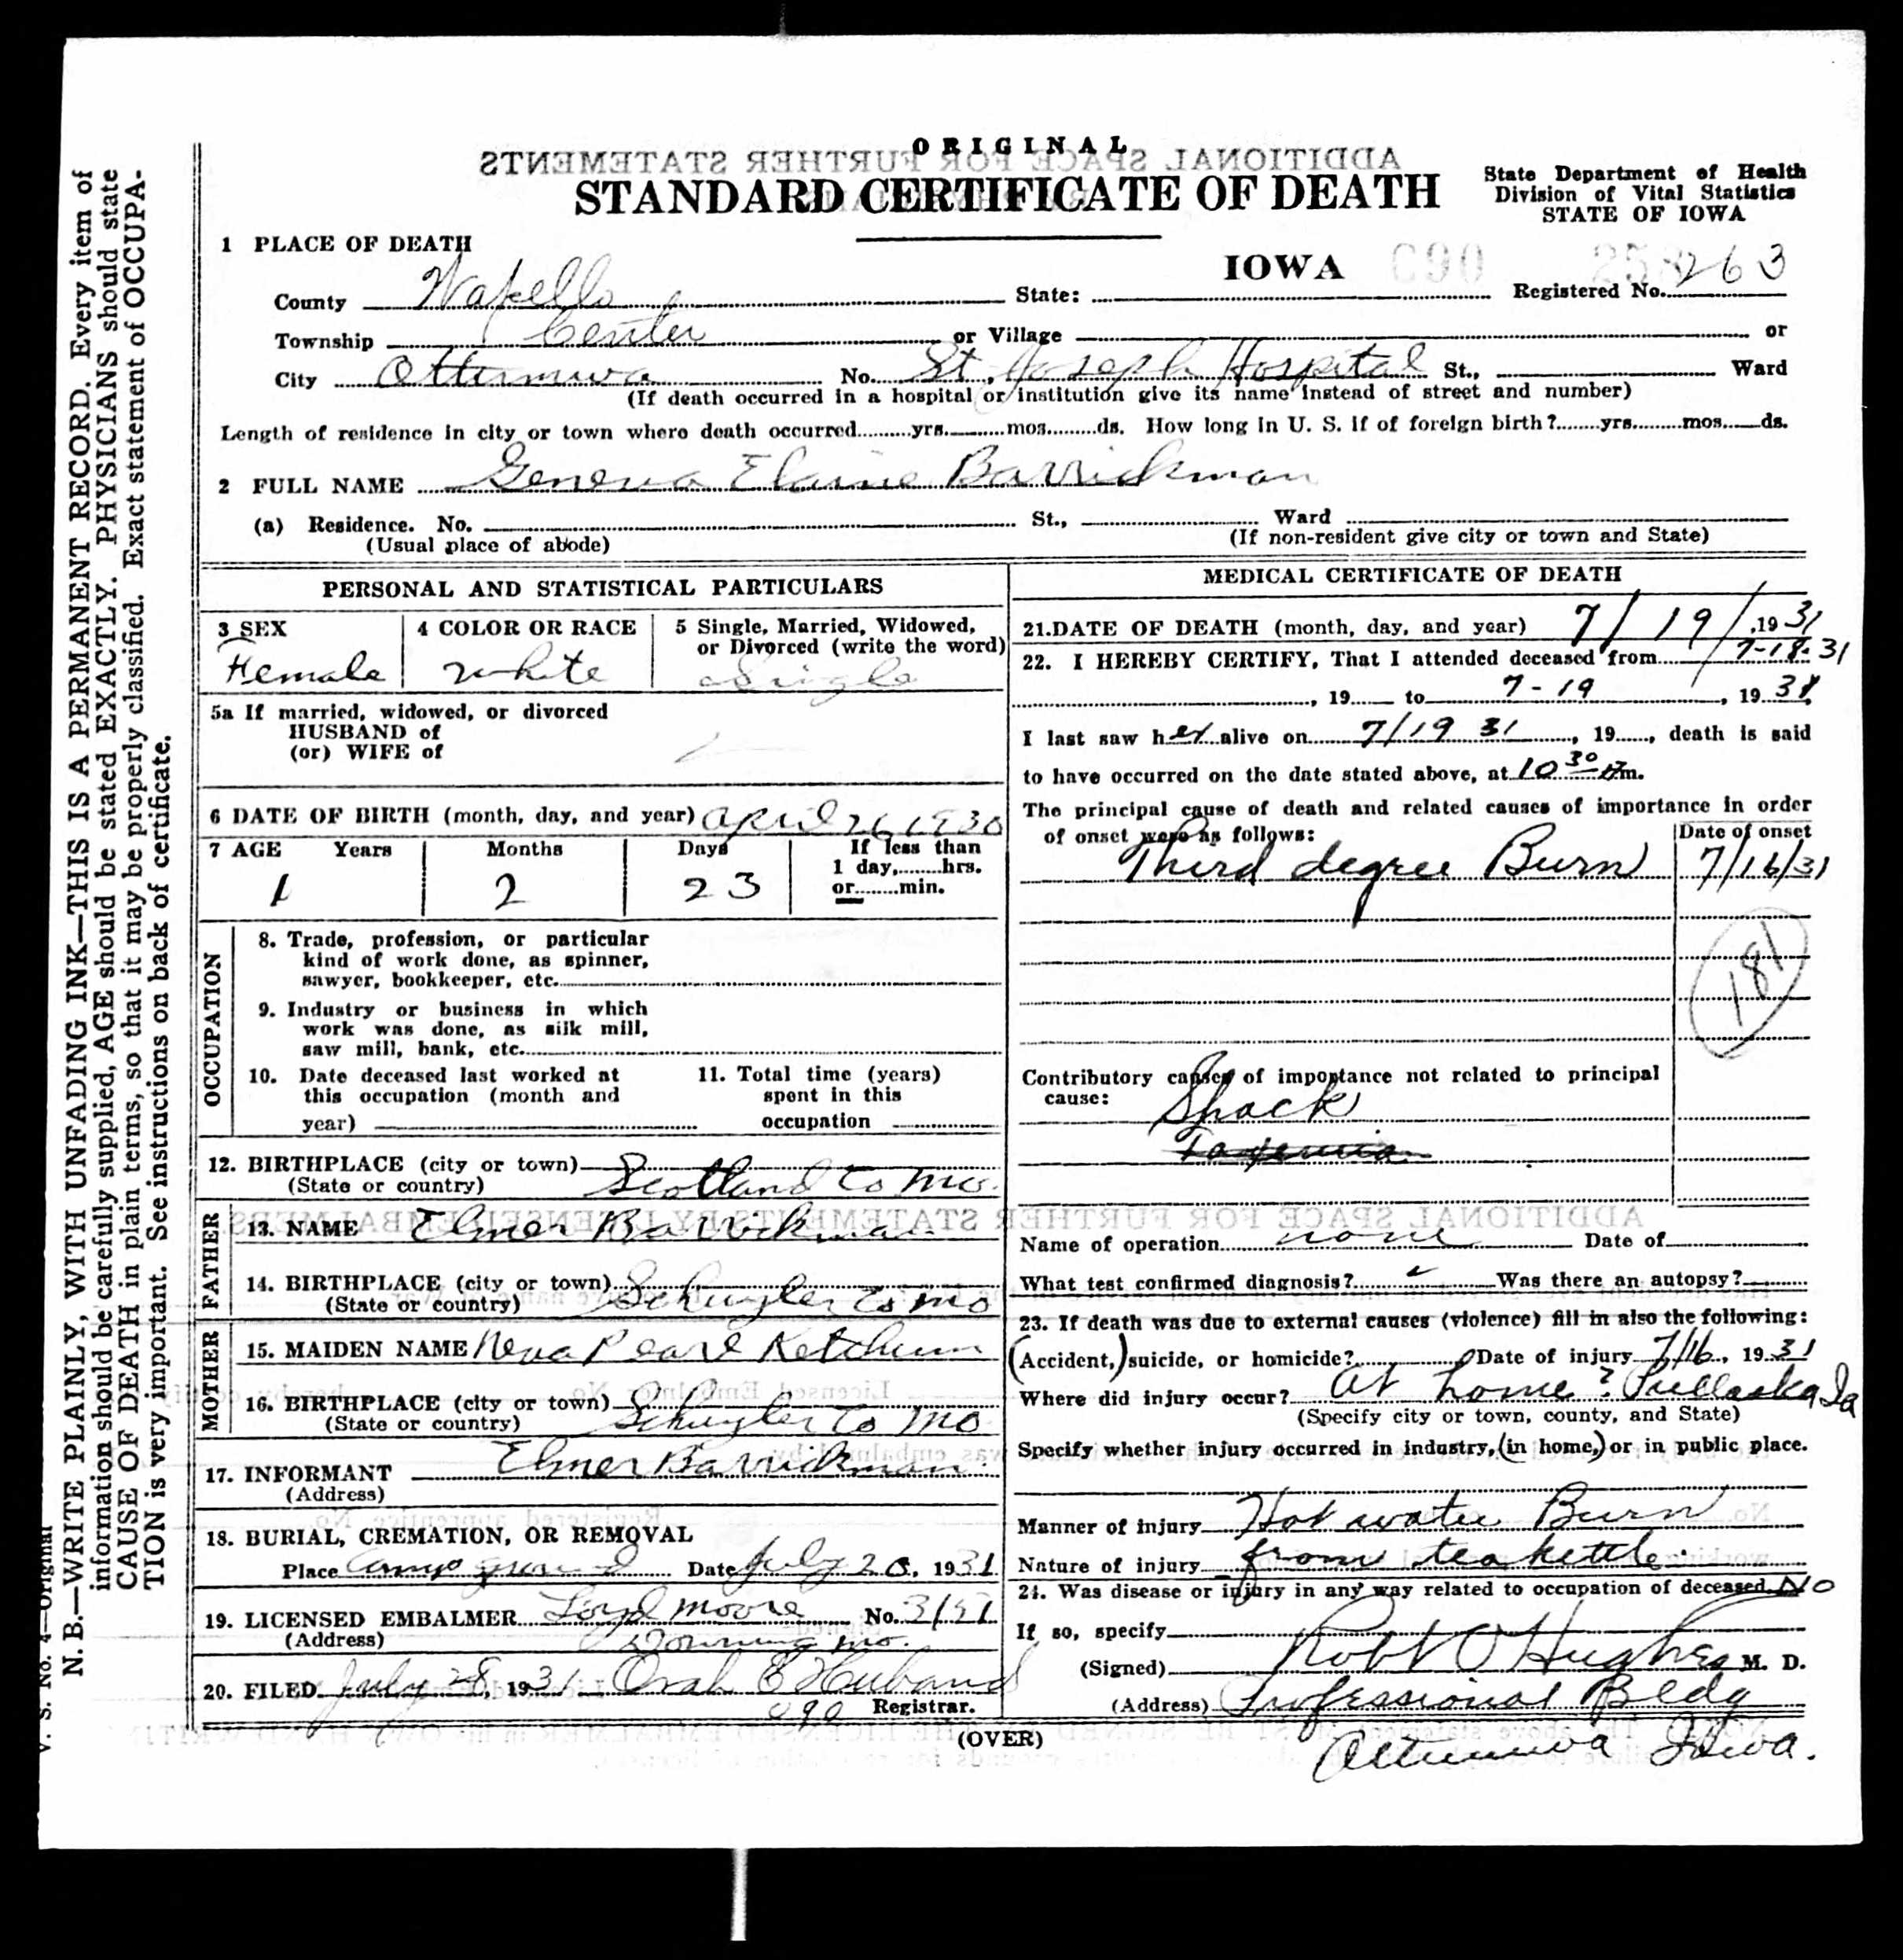 ORIGINAL
STANDARD CERTIFICATE OF DEATH
State Department of Health
Division of Vital Statistics
STATE OF IOWA
1 PLACE OF DEATH
IOWA
County Wapello State: Registered No. 263
Township Center or Village or
City Ottumwa No. St. Joseph Hospital St., Ward
(If death occurred in a hospital or institution give its name instead of street and number)
Length of residence in city or town where death occurred yrs. mos. ds. How long in U. S. if of foreign birth? yrs. mos. ds.
2 FULL NAME Geneva Elaine Barrickman
(a) Residence. No. St., Ward
(Usual place of abode) (If non-resident give city or town and State)
PERSONAL AND STATISTICAL PARTICULARS
3 SEX 4 COLOR OR RACE 5 Single, Married, Widowed,
or Divorced (write the word)
Female White Single
5a If married, widowed, or divorced
HUSBAND of
(or) WIFE of
6 DATE OF BIRTH (month, day, and year) April 26 1930
7 AGE Years Months Days If less than
1 day, hrs.
or min.
1 2 23
OCCUPATION
8. Trade, profession, or particular
kind of work done, as spinner,
sawyer, bookkeeper, etc.
9. Industry or business in which
work was done, as silk mill,
saw mill, bank, etc.
10. Date deceased last worked at
this occupation (month and
year)
11. Total time (years)
spent in this
occupation
12. BIRTHPLACE (city or town)
(State or country) Scotland Co Mo.
FATHER
13. NAME Elmer Barrickman
14. BIRTHPLACE (city or town)
(State or country) Schuyler Co Mo
MOTHER
15. MAIDEN NAME Neva Pearl Ketchum
16. BIRTHPLACE (city or town)
(State or country) Schuyler Co Mo
17. INFORMANT Elmer Barrickman
(Address)
18. BURIAL, CREMATION, OR REMOVAL
Place Camp ground Date July 20, 1931
19. LICENSED EMBALMER Loyd Moore No.
(Address) Downing Mo.
20. FILED July 28, 1931 Orah E
Registrar.
MEDICAL CERTIFICATE OF DEATH
21. DATE OF DEATH (month, day, and year) 7/19/, 1931
22. I HEREBY CERTIFY, That I attended deceased from 7-18-31
, 19 to 7-19, 1931
I last saw her alive on 7/19 31, 19, death is said
to have occurred on the date stated above, at 10 30 m.
The principal cause of death and related causes of importance in order
of onset were as follows: Date of onset
Third degree Burn 7/16/31
181
Contributory causes of importance not related to principal
cause:
Shock
Toxemia
Name of operation none Date of
What test confirmed diagnosis? Was there an autopsy?
23. If death was due to external causes (violence) fill in also the following:
(Accident,) suicide, or homicide? Date of injury 7/16, 1931
Where did injury occur? At home? Pullaska Ia
(Specify city or town, county, and State)
Specify whether injury occurred in industry, (in home,) or in public place.
Manner of injury Hot water Burn
Nature of injury from teakettle.
24. Was disease or injury in any way related to occupation of deceased No
If so, specify
(Signed) Robt O Hughes M. D.
(Address) Professional Bldg
Ottumwa Iowa.
(OVER)
V. S. No. 4—Original
N. B.—WRITE PLAINLY, WITH UNFADING INK—THIS IS A PERMANENT RECORD. Every item of
information should be carefully supplied, AGE should be stated EXACTLY. PHYSICIANS should state
CAUSE OF DEATH in plain terms, so that it may be properly classified. Exact statement of OCCUPA-
TION is very important. See instructions on back of certificate.